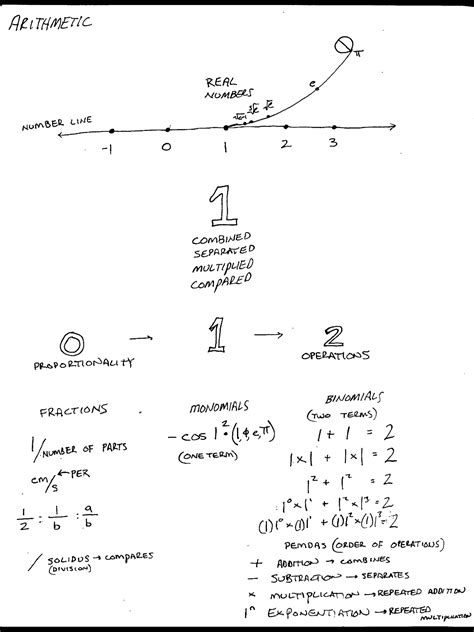 ARITHMETIC
π
e
REAL
NUMBERS
NUMBER LINE
-1 0 1 2 3
1
COMBINED
SEPARATED
MULTIPLIED
COMPARED
0 → 1 → 2
PROPORTIONALITY
OPERATIONS
FRACTIONS
1/NUMBER OF PARTS
cm/s ← PER
1/2 : 1/b : a/b
/ SOLIDUS → COMPARES
(DIVISION)
MONOMIALS
- cos 1² • (1, φ, e, π)
(ONE TERM)
BINOMIALS
(TWO TERMS)
1 + 1 = 2
1x1 + 1x1 = 2
1² + 1² = 2
1⁰x1¹ + 1²x1³ = 2
(1)1⁰x(1)1¹ + (1)1²x(1)1³ = 2
PEMDAS (ORDER OF OPERATIONS)
+ ADDITION → COMBINES
- SUBTRACTION → SEPARATES
x MULTIPLICATION → REPEATED ADDITION
1ⁿ EXPONENTIATION → REPEATED
MULTIPLICATION